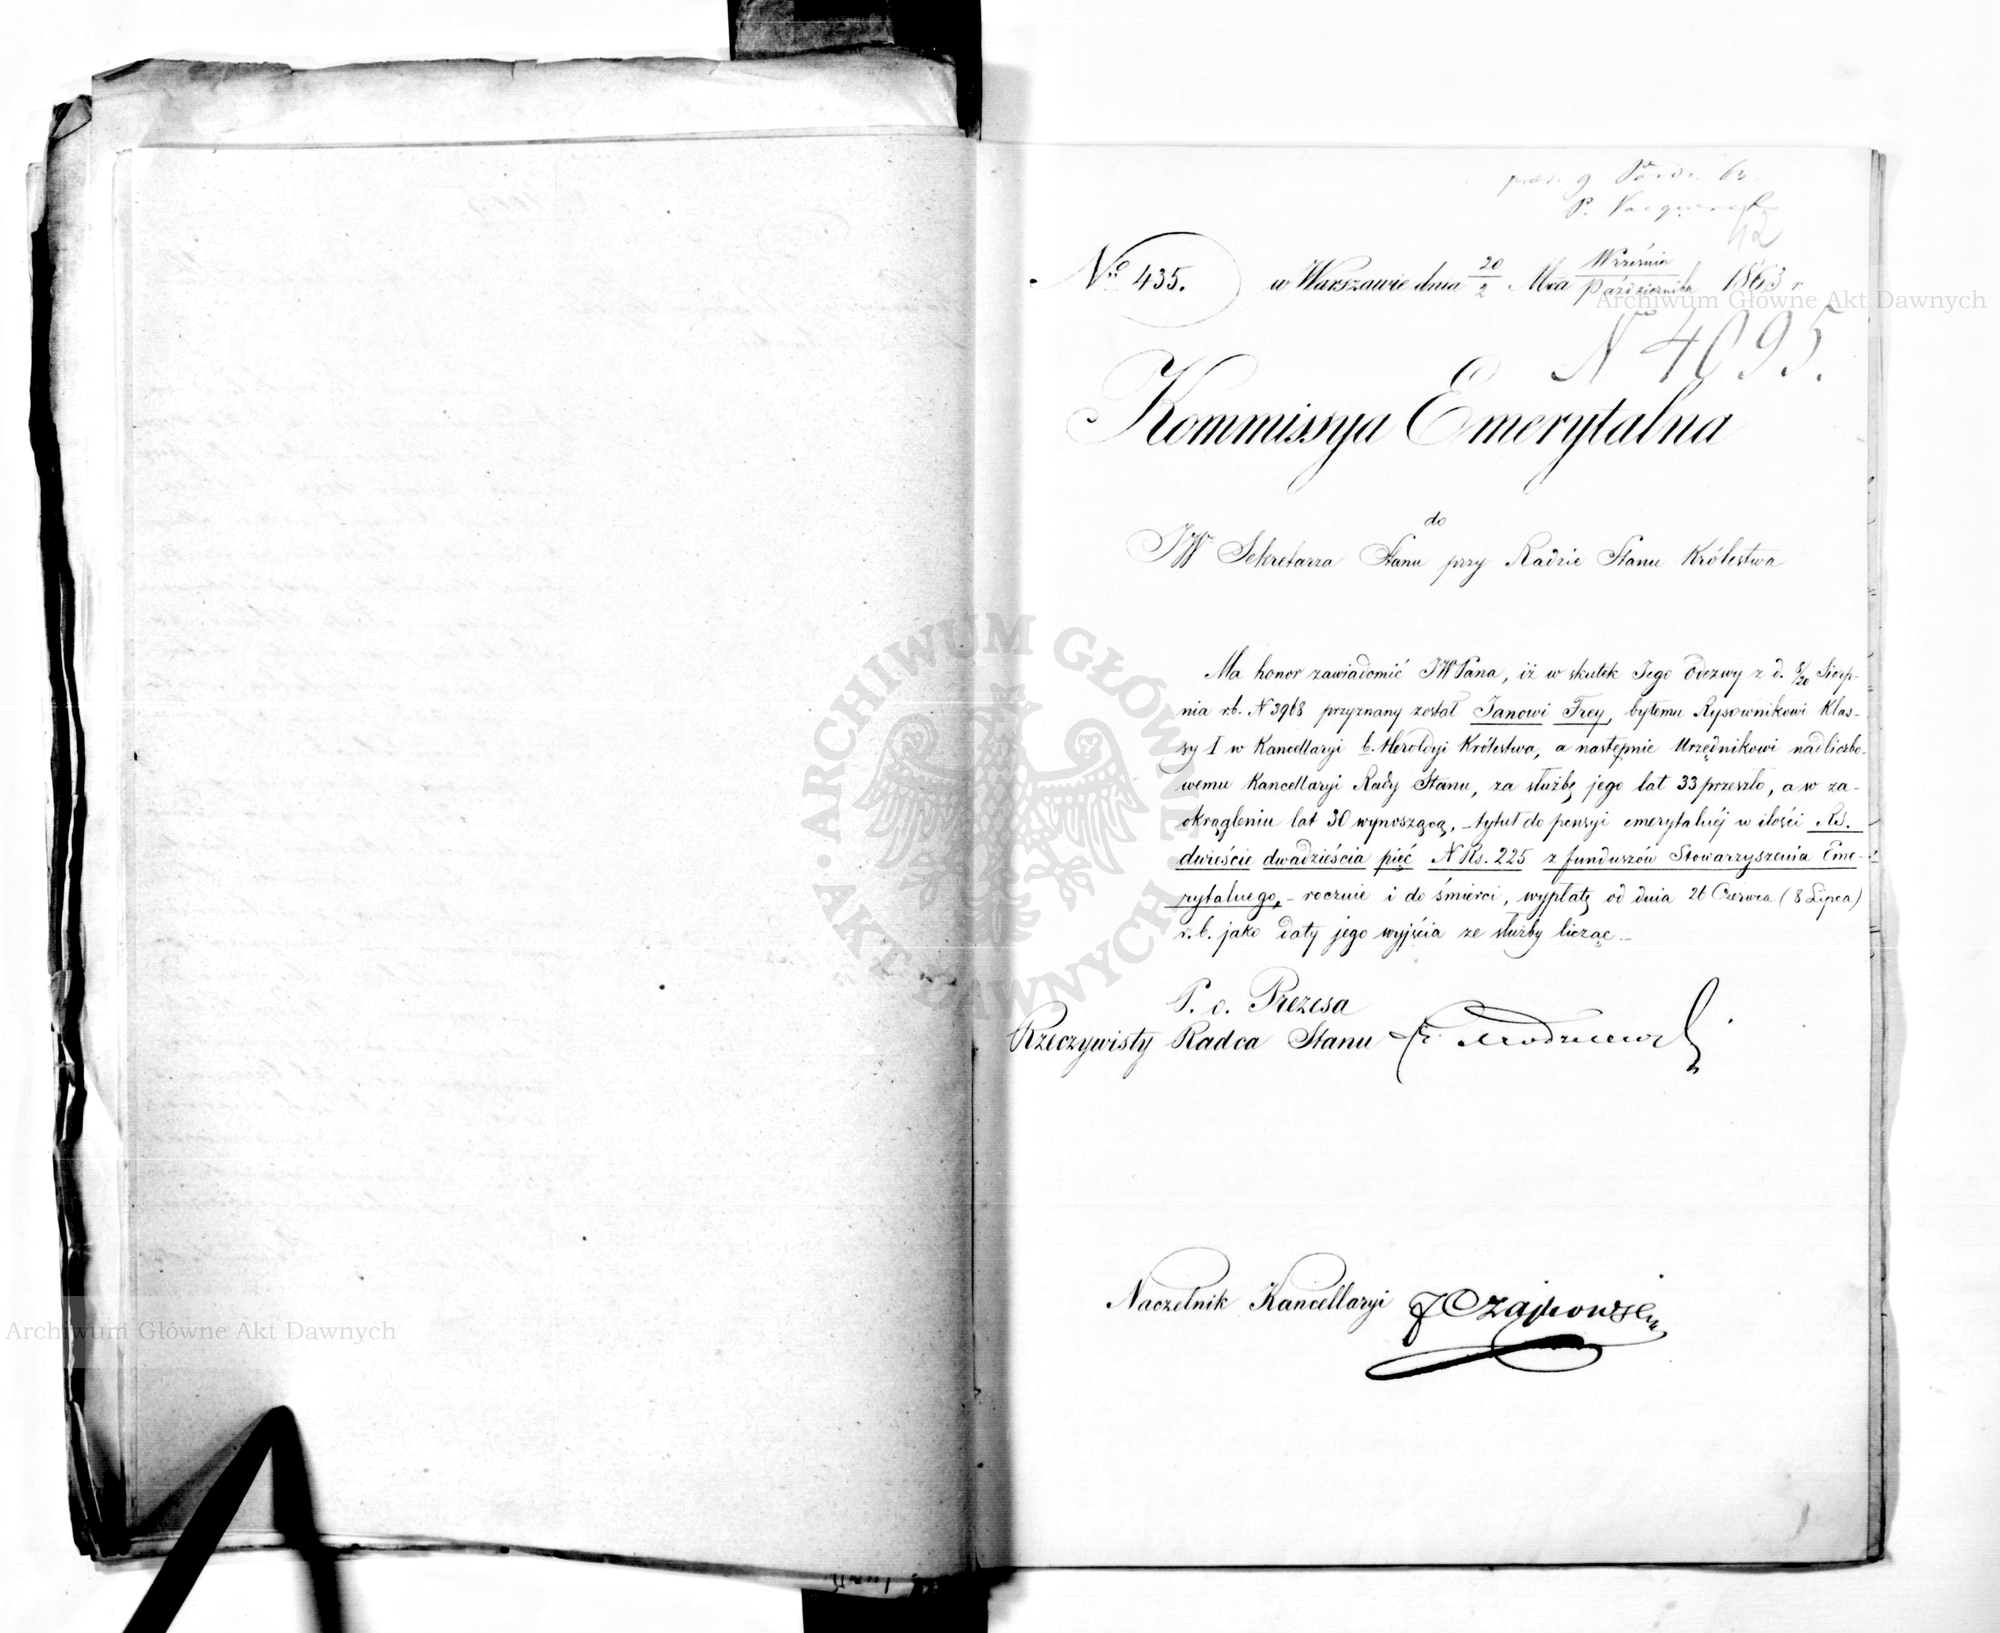 42
Nro 435. w Warszawie dnia 20/2 Mca Września/Października 1863 r.
N 4095.
Kommissya Emerytalna
do
JW Sekretarza Stanu przy Radzie Stanu Królestwa
Ma honor zawiadomić JWPana, iż w skutek Jego Odezwy z d. 8/20 Sierp-
nia r.b. N 3968 przyznany został Janowi Frey, byłemu Rysownikowi Klas-
sy I w Kancellaryi b. Heroldyi Królestwa, a następnie Urzędnikowi nadliczbo-
wemu Kancellaryi Rady Stanu, za służbę jego lat 33 przeszło, a w za-
okrągleniu lat 30 wynoszącą, – tytuł do pensyi emerytalnéj w ilości Rs.
dwieście dwadzieścia pięć N Rs. 225 z funduszów Stowarzyszenia Eme-
rytalnego, – rocznie i do śmierci, wypłatę od dnia 26 Czerwca (8 Lipca)
r.b. jako daty jego wyjścia ze służby licząc. –
P. o. Prezesa
Rzeczywisty Radca Stanu
Naczelnik Kancellaryi J Czajkowski
Archiwum Główne Akt Dawnych
ARCHIWUM GŁÓWNE AKT DAWNYCH
Archiwum Główne Akt Dawnych